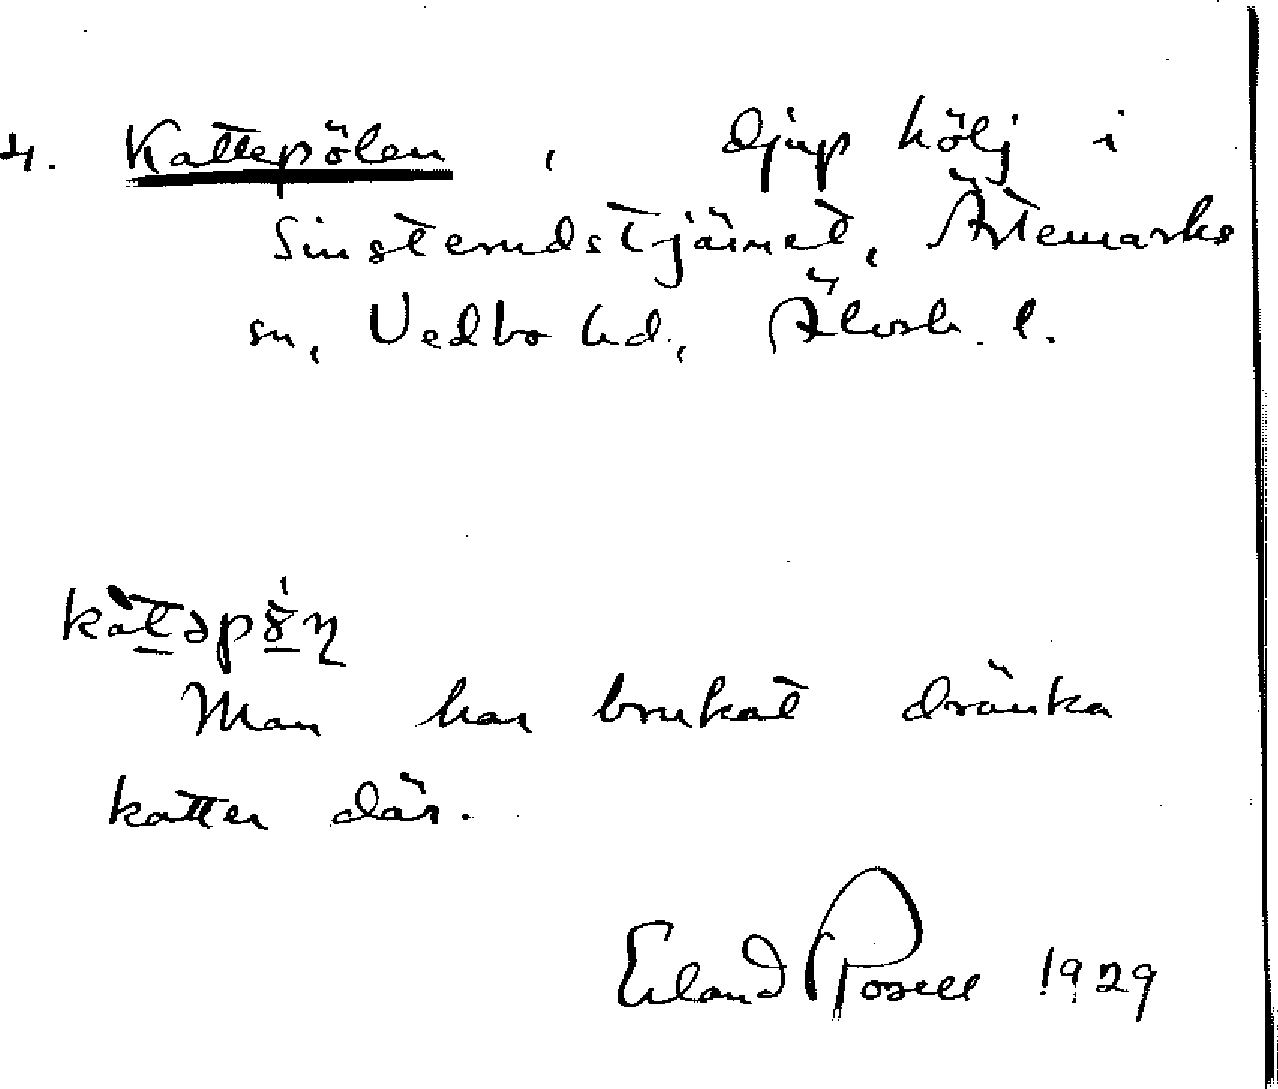 4. Kattepölen, djup hölj i
Sinsterudstjärnet, Ärtemarks
sn, Vedbo hd., Älvsb. l.
Man har brukat dränka
katter där.
Erland Rosell 1929